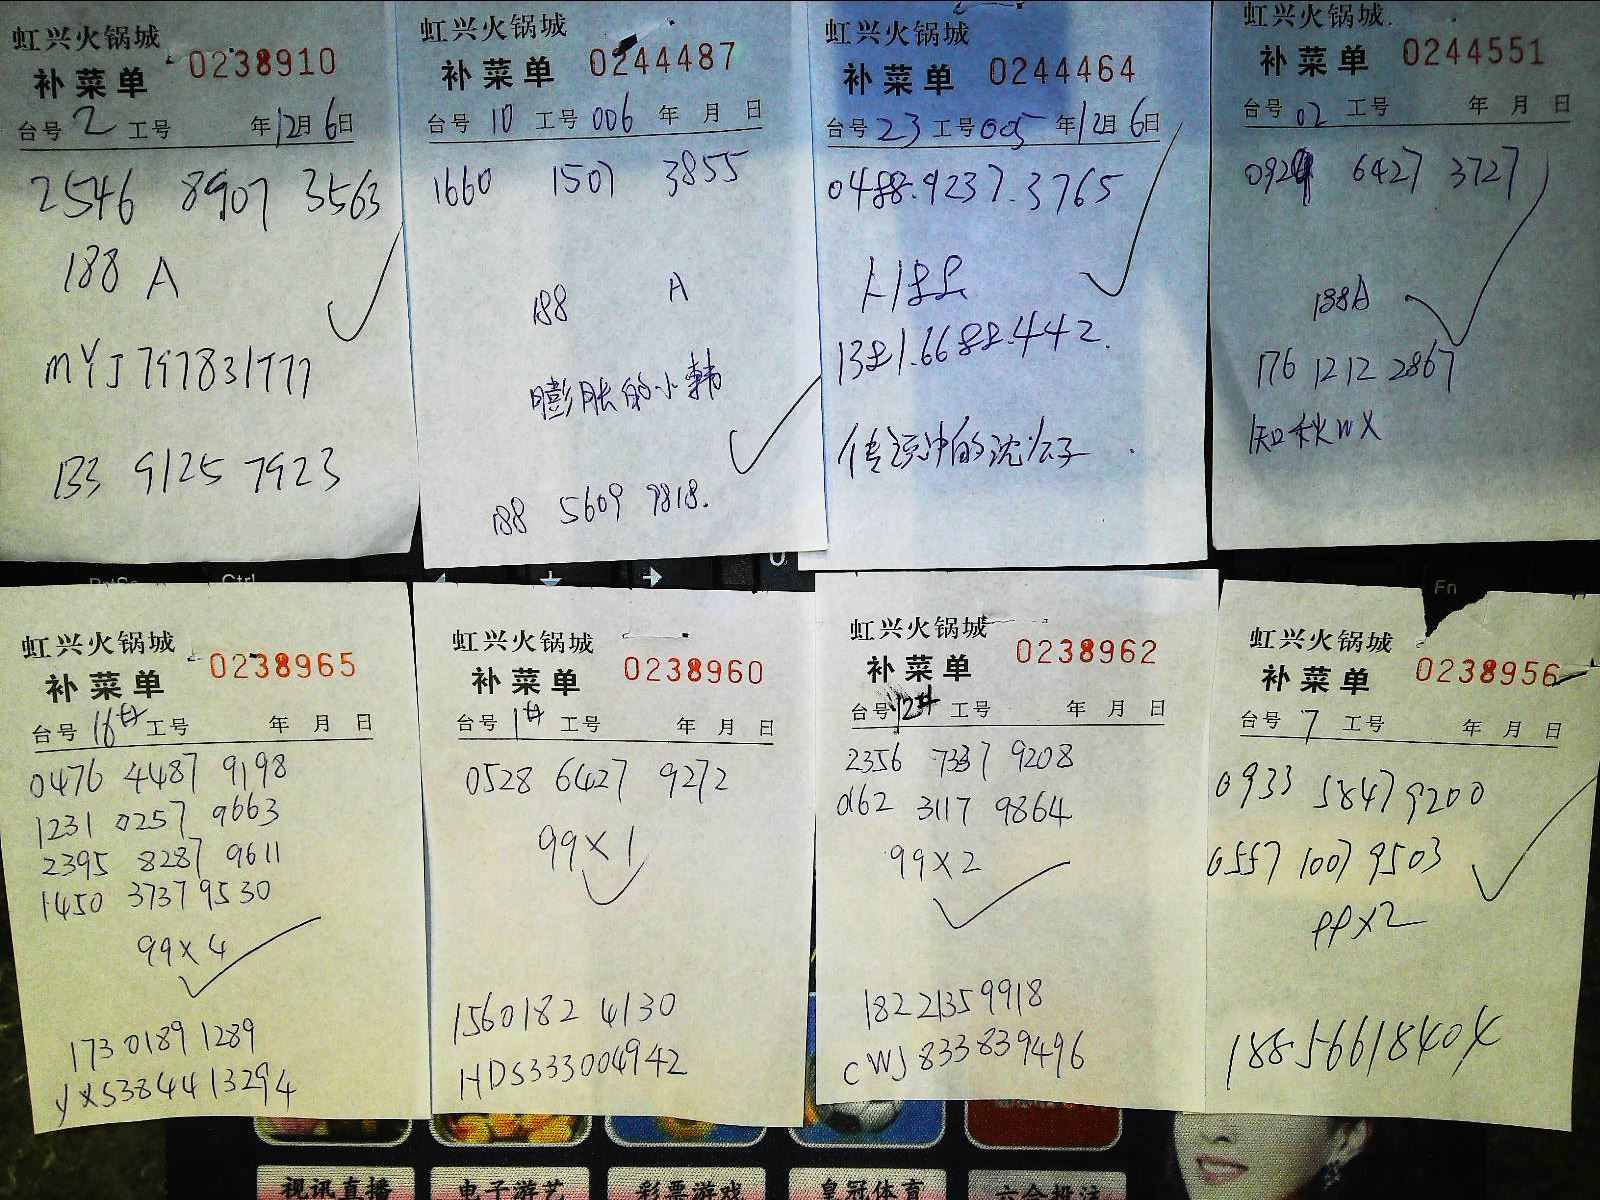 虹兴火锅城
补菜单 0238910
台号 2 工号 年 12月 6日
2546 8907 3563
188 A
MYJ797831777
133 9125 7923
虹兴火锅城
补菜单 0244487
台号 10 工号 006 年 月 日
1660 1507 3855
188 A
膨胀的小韩
188 5609 7818.
虹兴火锅城
补菜单 0244464
台号 23 工号 005 年 12月 6日
0488.9237.3765
1381.6688.442.
传说中的沈公子
虹兴火锅城
补菜单 0244551
台号 02 工号 年 月 日
6427 3727
188A
176 1212 2867
知秋WX
Ctrl
Fn
虹兴火锅城
补菜单 0238965
台号 16# 工号 年 月 日
0476 4487 9198
1231 0257 9663
2395 8287 9611
1450 3737 9530
99×4
173 0189 1289
YXS384413294
虹兴火锅城
补菜单 0238960
台号 1# 工号 年 月 日
0528 6427 9272
99×1
1560182 4130
HDS333004942
虹兴火锅城
补菜单 0238962
台号 12# 工号 年 月 日
2356 7337 9208
0162 3117 9864
99×2
182 21359918
CWJ833839496
虹兴火锅城
补菜单 0238956
台号 7 工号 年 月 日
0933 5847 9200
0557 1007 9503
99×2
18856618404
视讯直播 电子游艺 彩票游戏 皇冠体育 六合投注